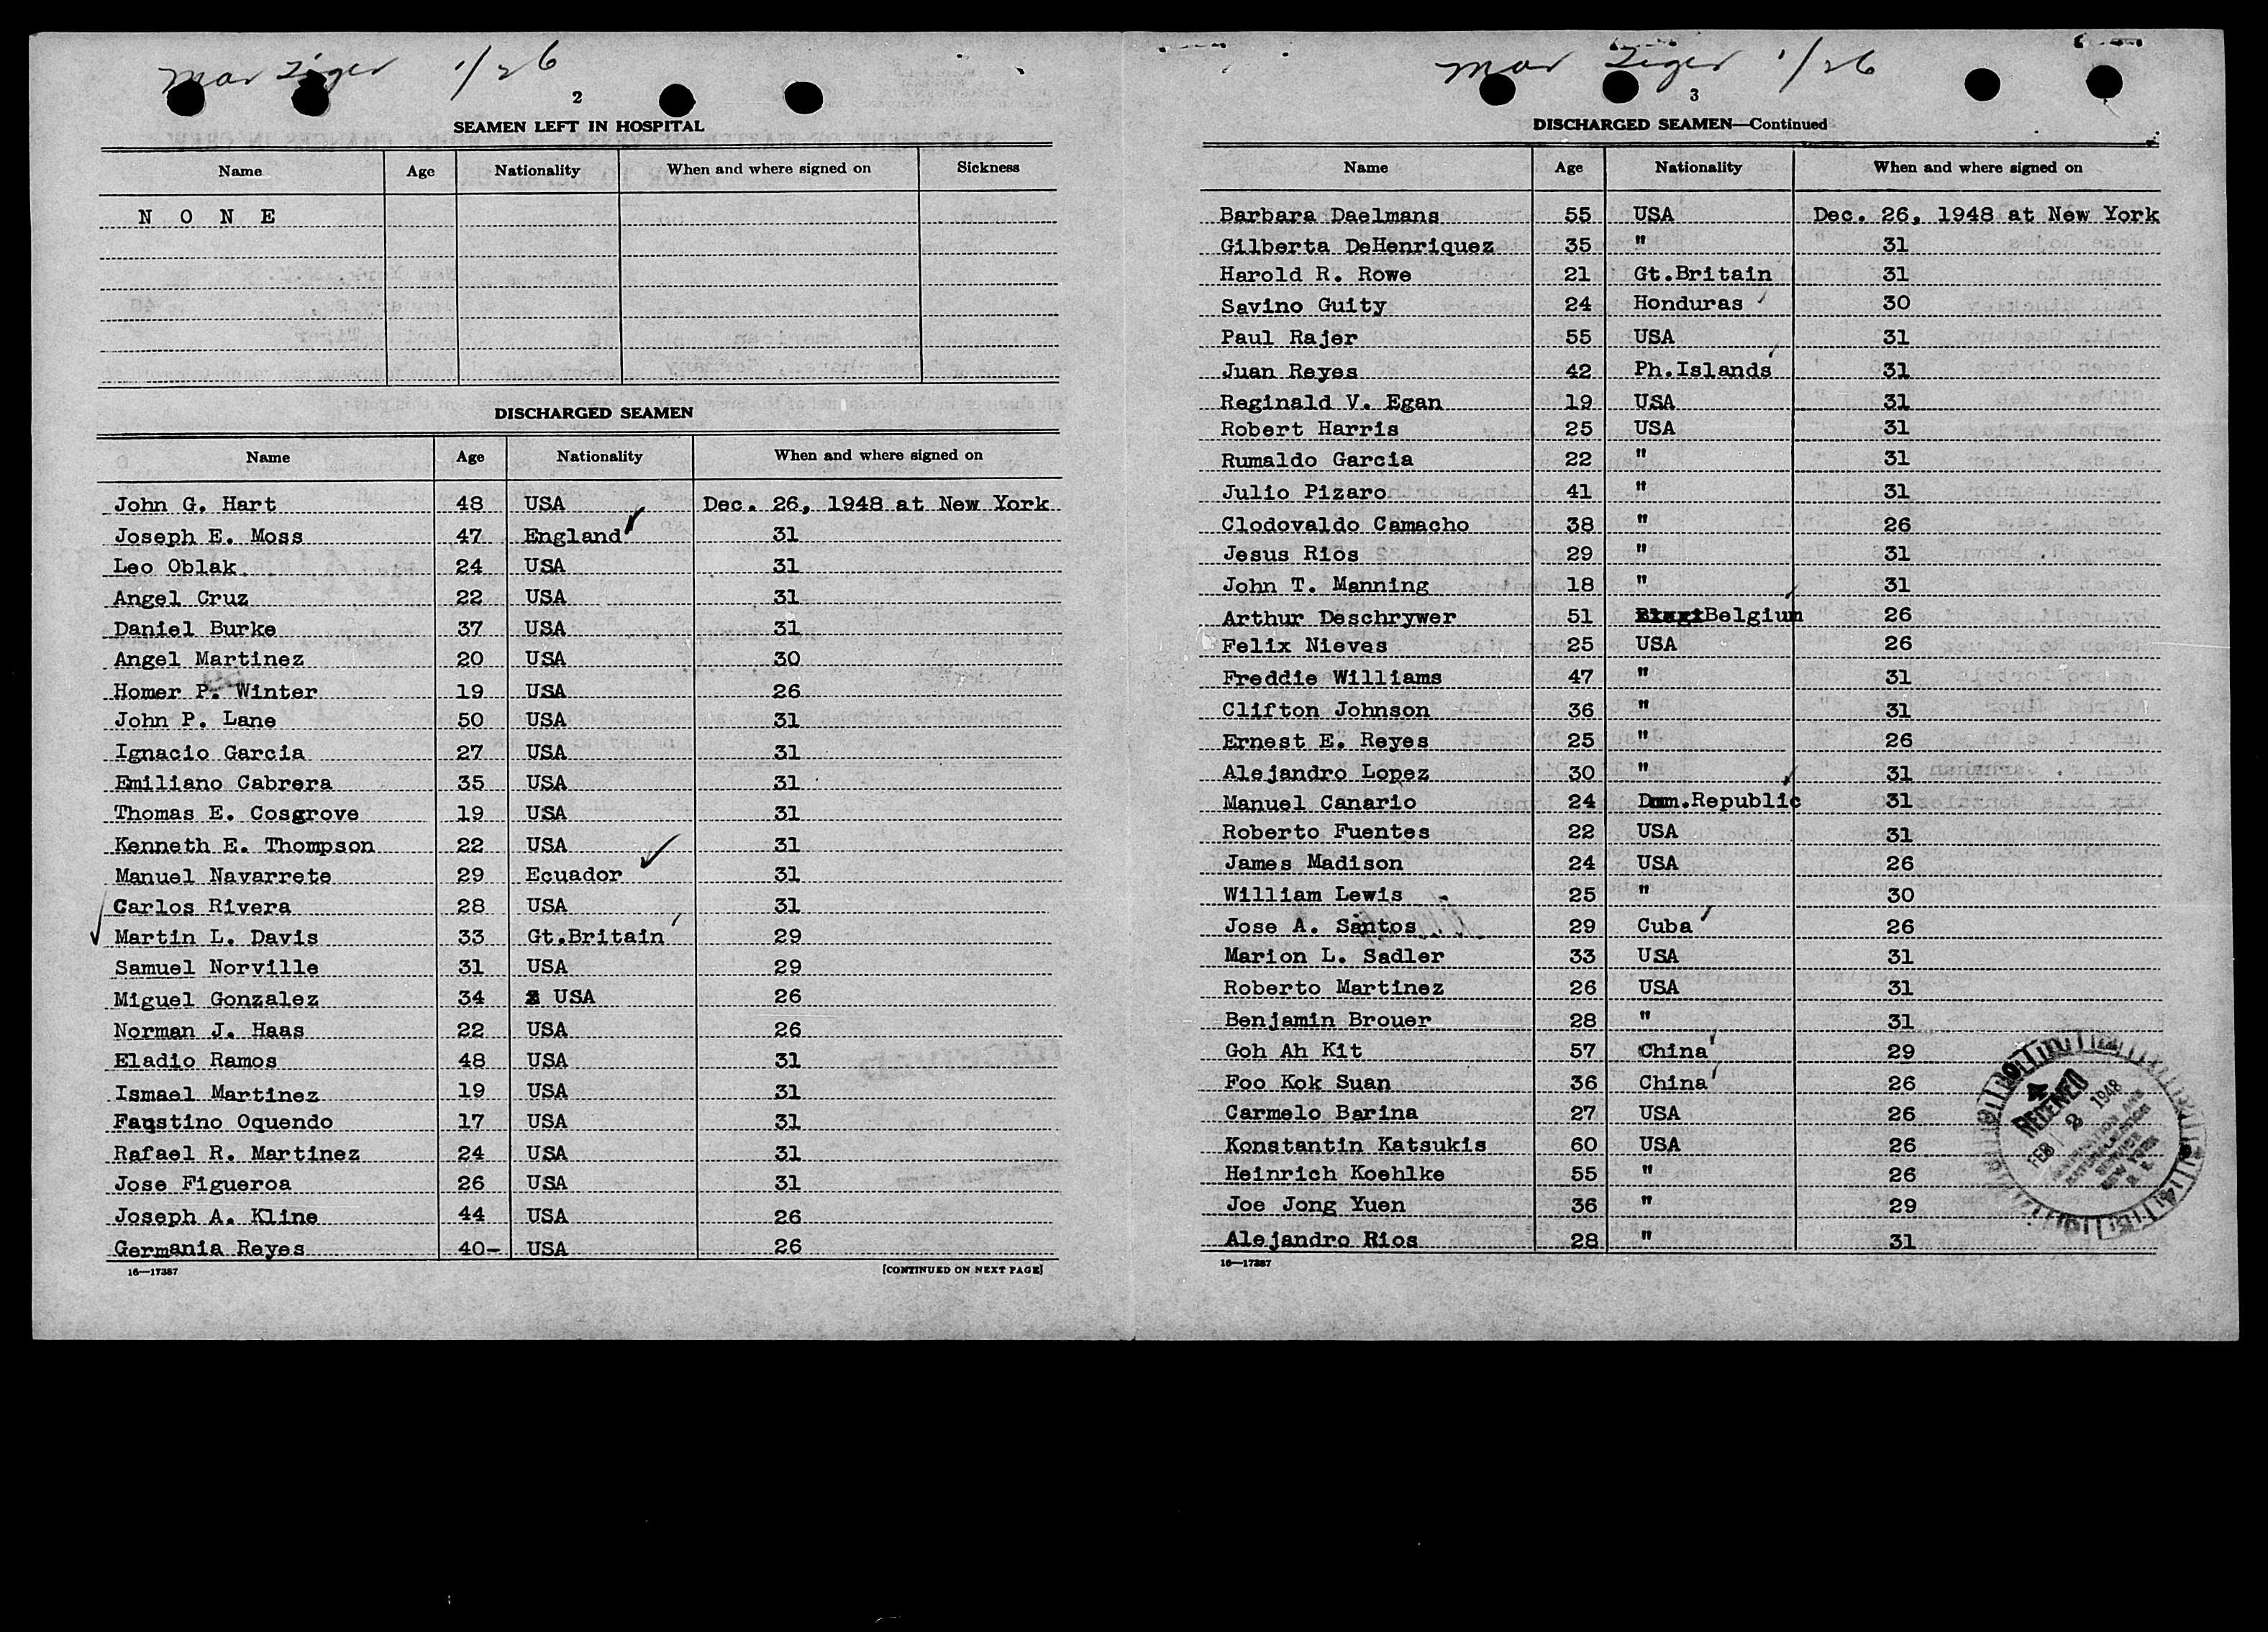 Mar Tiger 1/26
2
SEAMEN LEFT IN HOSPITAL
Name Age Nationality When and where signed on Sickness
N O N E
DISCHARGED SEAMEN
Name Age Nationality When and where signed on
John G. Hart 48 USA Dec. 26, 1948 at New York
Joseph E. Moss 47 England 31
Leo Oblak 24 USA 31
Angel Cruz 22 USA 31
Daniel Burke 37 USA 31
Angel Martinez 20 USA 30
Homer P. Winter 19 USA 26
John P. Lane 50 USA 31
Ignacio Garcia 27 USA 31
Emiliano Cabrera 35 USA 31
Thomas E. Cosgrove 19 USA 31
Kenneth E. Thompson 22 USA 31
Manuel Navarrete 29 Ecuador 31
Carlos Rivera 28 USA 31
Martin L. Davis 33 Gt.Britain 29
Samuel Norville 31 USA 29
Miguel Gonzalez 34 USA 26
Norman J. Haas 22 USA 26
Eladio Ramos 48 USA 31
Ismael Martinez 19 USA 31
Faustino Oquendo 17 USA 31
Rafael R. Martinez 24 USA 31
Jose Figueroa 26 USA 31
Joseph A. Kline 44 USA 26
Germania Reyes 40- USA 26
16—17387 [CONTINUED ON NEXT PAGE]
Mar Tiger 1/26
3
DISCHARGED SEAMEN—Continued
Name Age Nationality When and where signed on
Barbara Daelmans 55 USA Dec. 26, 1948 at New York
Gilberta DeHenriquez 35 " 31
Harold R. Rowe 21 Gt.Britain 31
Savino Guity 24 Honduras 30
Paul Rajer 55 USA 31
Juan Reyes 42 Ph.Islands 31
Reginald V. Egan 19 USA 31
Robert Harris 25 USA 31
Rumaldo Garcia 22 " 31
Julio Pizaro 41 " 31
Clodovaldo Camacho 38 " 26
Jesus Rios 29 " 31
John T. Manning 18 " 31
Arthur Deschrywer 51 Belgium 26
Felix Nieves 25 USA 26
Freddie Williams 47 " 31
Clifton Johnson 36 " 31
Ernest E. Reyes 25 " 26
Alejandro Lopez 30 " 31
Manuel Canario 24 Dom.Republic 31
Roberto Fuentes 22 USA 31
James Madison 24 USA 26
William Lewis 25 " 30
Jose A. Santos 29 Cuba 26
Marion L. Sadler 33 USA 31
Roberto Martinez 26 USA 31
Benjamin Brouer 28 " 31
Goh Ah Kit 57 China 29
Foo Kok Suan 36 China 26
Carmelo Barina 27 USA 26
Konstantin Katsukis 60 USA 26
Heinrich Koehlke 55 " 26
Joe Jong Yuen 36 " 29
Alejandro Rios 28 " 31
16—17387
4
RECEIVED
FEB 2 1948